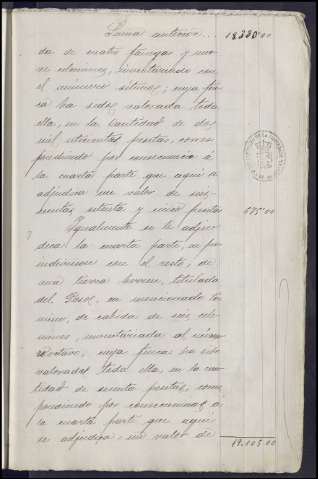 Suma anterior... 18.330.00
da de cuatro fanegas y nue-
ve celemines, inventariada con
el número setecos; cuya fin-
ca ha sido valorada toda
ella, en la cantidad de dos
mil setecientas pesetas, corres-
pondiendo por consecuencia á
la cuarta parte que aquí se
adjudica un valor de seis-
cientas setenta y cinco pesetas 675.00
Igualmente se le adju-
dica la cuarta parte, en pro-
indivision con el resto, de
una tierra llamada, titulada
del Pozo, en mencionado tér-
mino, de cabida de seis cele-
mines, inventariada al número
octavo; cuya finca ha sido
valorada toda ella, en la can-
tidad de pesetas, corres-
pondiendo por consecuencia á
la cuarta parte que aquí
se adjudica un valor de
19.005.00